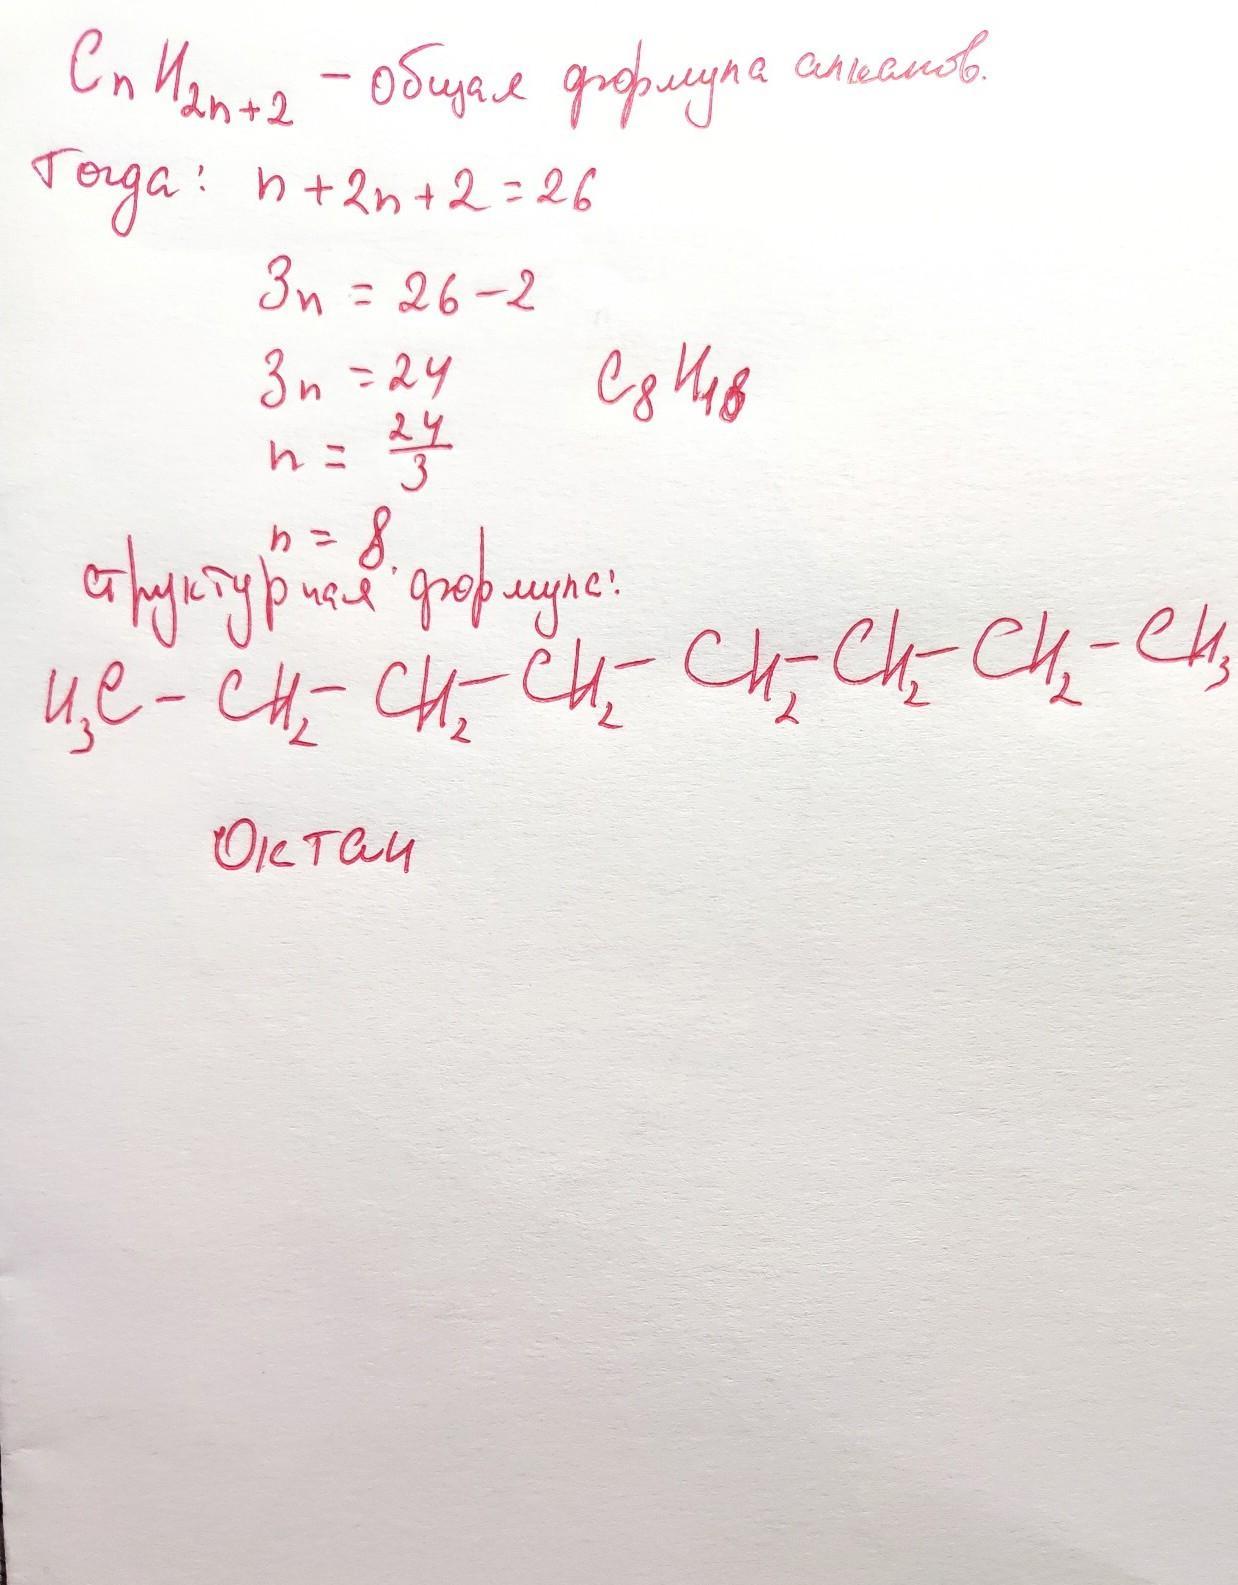 CnH2n+2 – общая формула алканов.
Тогда: n + 2n + 2 = 26
3n = 26 – 2
3n = 24
C8H18
n = 24/3
n = 8.
структурная формула:
H3C – CH2 – CH2 – CH2 – CH2 – CH2 – CH2 – CH3
Октан